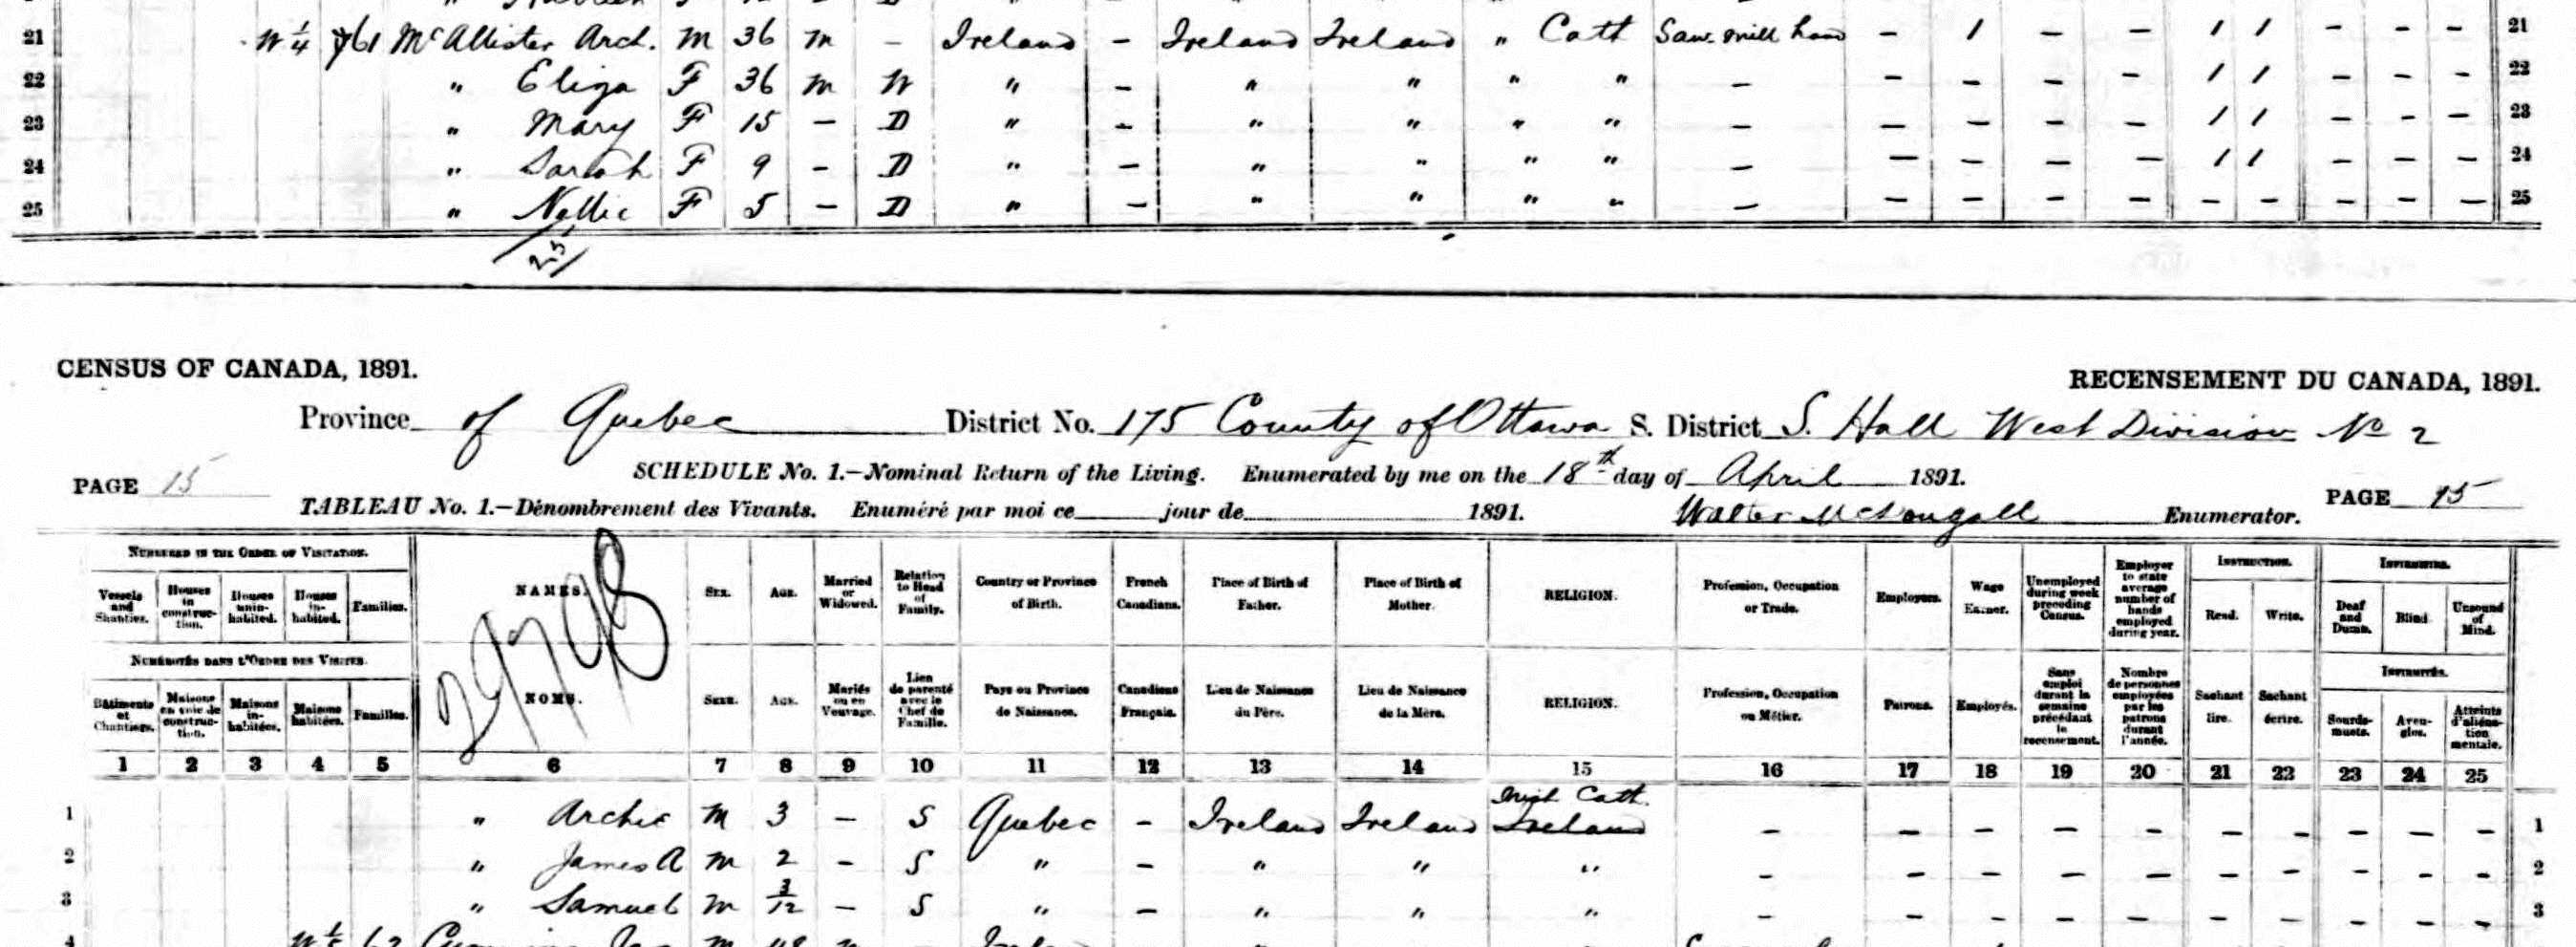 21 W 1/4 61 McAllister Arch. M 36 M - Ireland - Ireland Ireland " Cath Saw mill hand - 1 - - 1 1 - - - 21
22 " Eliza F 36 M W " - " " " " - - - - - 1 1 - - - 22
23 " Mary F 15 - D " - " " " " - - - - - 1 1 - - - 23
24 " Sarah F 9 - D " - " " " " - - - - - 1 1 - - - 24
25 " Nellie F 5 - D " - " " " " - - - - - - - - - - 25
25
CENSUS OF CANADA, 1891. RECENSEMENT DU CANADA, 1891.
Province of Quebec District No. 175 County of Ottawa S. District S. Hull West Division No 2
PAGE 15 SCHEDULE No. 1.—Nominal Return of the Living. Enumerated by me on the 18th day of April 1891. PAGE 15
TABLEAU No. 1.—Dénombrement des Vivants. Enuméré par moi ce jour de 1891. Walter McDougall Enumerator.
NUMBERED IN THE ORDER OF VISITATION.
Vessels and Shanties. Houses in construction. Houses uninhabited. Houses inhabited. Families. NAMES. SEX. AGE. Married or Widowed. Relation to Head of Family. Country or Province of Birth. French Canadians. Place of Birth of Father. Place of Birth of Mother. RELIGION. Profession, Occupation or Trade. Employers. Wage Earner. Unemployed during week preceding Census. Employer to state average number of hands employed during year. INSTRUCTION. Read. Write. INFIRMITIES. Deaf and Dumb. Blind. Unsound of Mind.
NUMÉROTÉS DANS L'ORDRE DES VISITES.
Bâtiments et Chantiers. Maisons en voie de construction. Maisons inhabitées. Maisons habitées. Familles. NOMS. SEXE. AGE. Mariés ou en Veuvage. Lien de parenté avec le Chef de Famille. Pays ou Province de Naissance. Canadiens Français. Lieu de Naissance du Père. Lieu de Naissance de la Mère. RELIGION. Profession, Occupation ou Métier. Patrons. Employés. Sans emploi durant la semaine précédant le recensement. Nombre de personnes employées par les patrons durant l'année. Sachant lire. Sachant écrire. INFIRMITÉS. Sourds-muets. Aveugles. Atteints d'aliénation mentale.
1 2 3 4 5 6 7 8 9 10 11 12 13 14 15 16 17 18 19 20 21 22 23 24 25
Irish Cath.
1 " Archie M 3 - S Quebec - Ireland Ireland Ireland - - - - - - - - - - 1
2 " James A M 2 - S " - " " " - - - - - - - - - - 2
3 " Samuel M 3/12 - S " - " " " - - - - - - - - - - 3